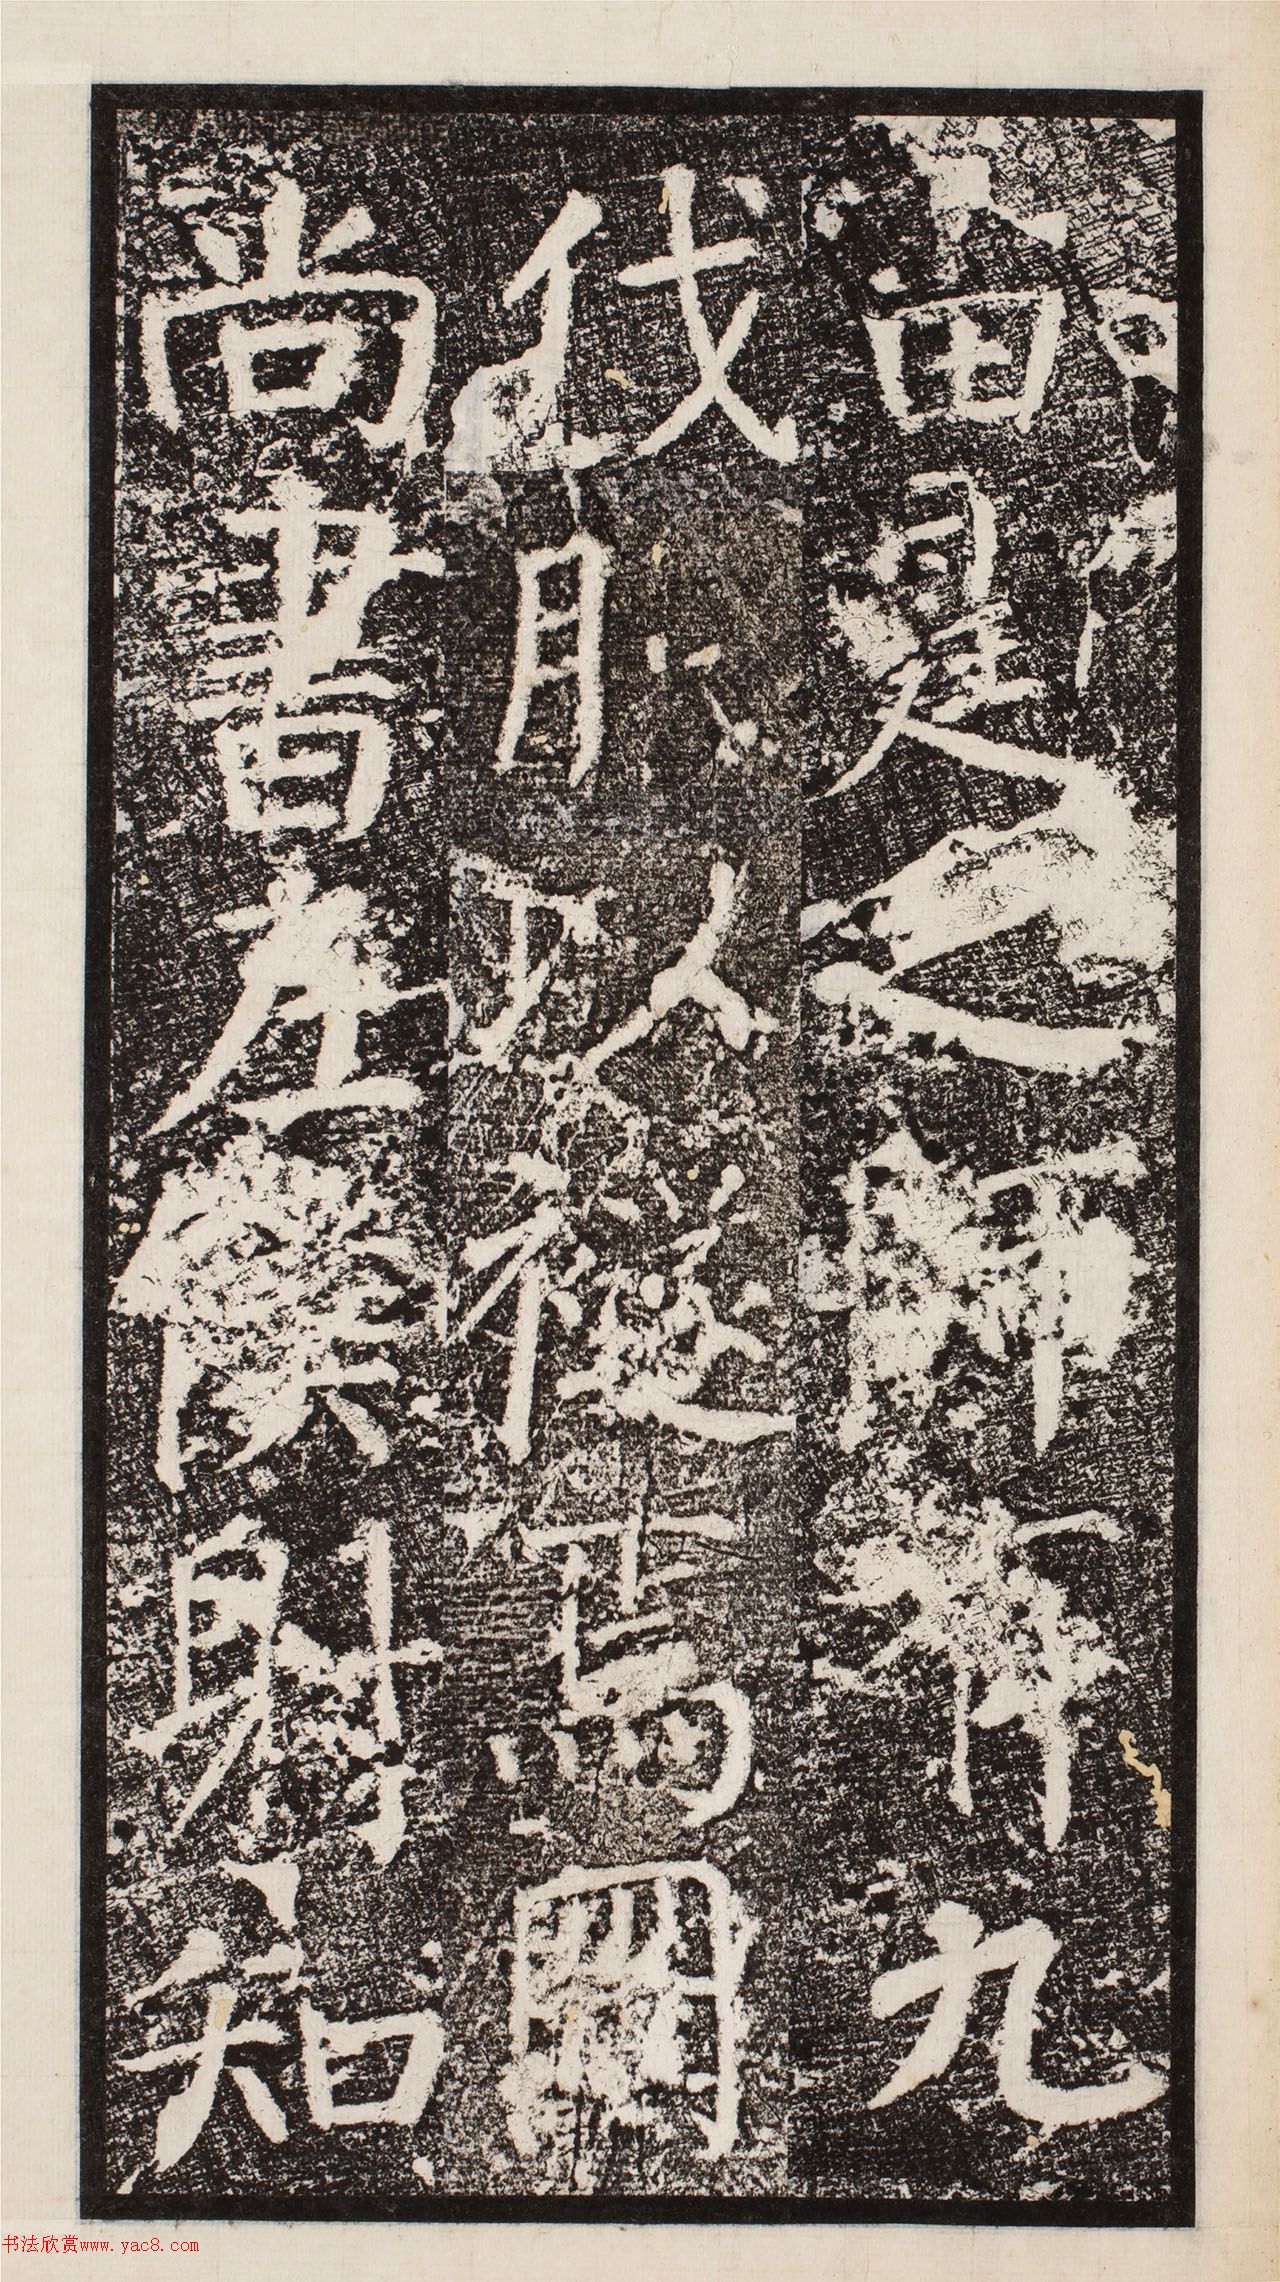 是之師九
伐以從焉
尚書左僕射知
书法欣赏www.yac8.com